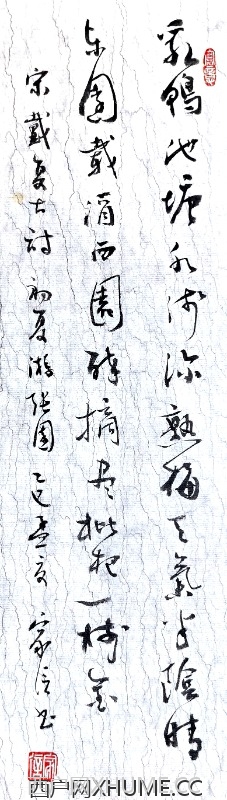 乳鴨池塘水浅深熟梅天氣半陰晴
东園載酒西園醉摘尽枇杷一树金
宋戴复古詩初夏游张園乙巳孟夏家信书
西户网XHUME.CC